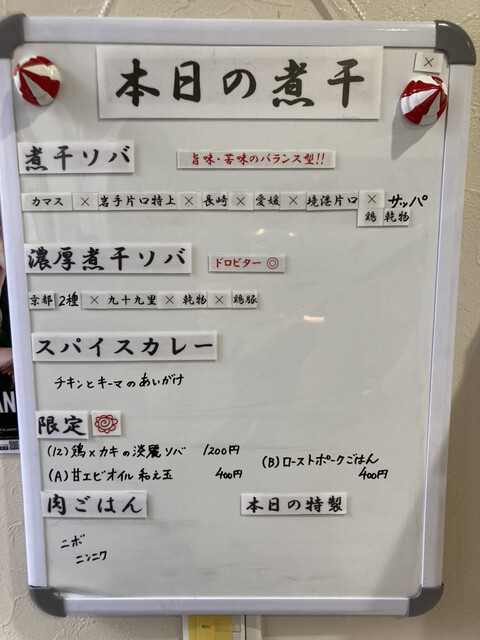 ×
本日の煮干
煮干ソバ
旨味・苦味のバランス型!!
カマス×岩手片口特上×長崎×愛媛×境港片口×サッパ
鶏 乾物
濃厚煮干ソバ
ドロビター◎
京都2種×九十九里×乾物×鶏豚
スパイスカレー
チキンとキーマのあいがけ
限定
(12)鶏×カキの淡麗ソバ 1200円
(A)甘エビオイル和え玉 400円
(B)ローストポークごはん
400円
肉ごはん
本日の特製
ニボ
ニンニク
AN